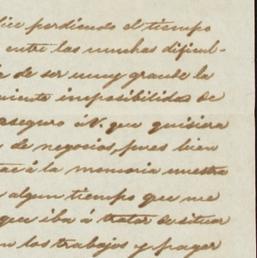 lice perdiendo el tiempo
entre las muchas dificul-
de ser muy grande la
imposibilidad de
aseguro á V. que quisiera
de negocios, pues bien
á la memoria nuestra
algun tiempo que me
que iba á tratar de situar
los trabajos y pagar